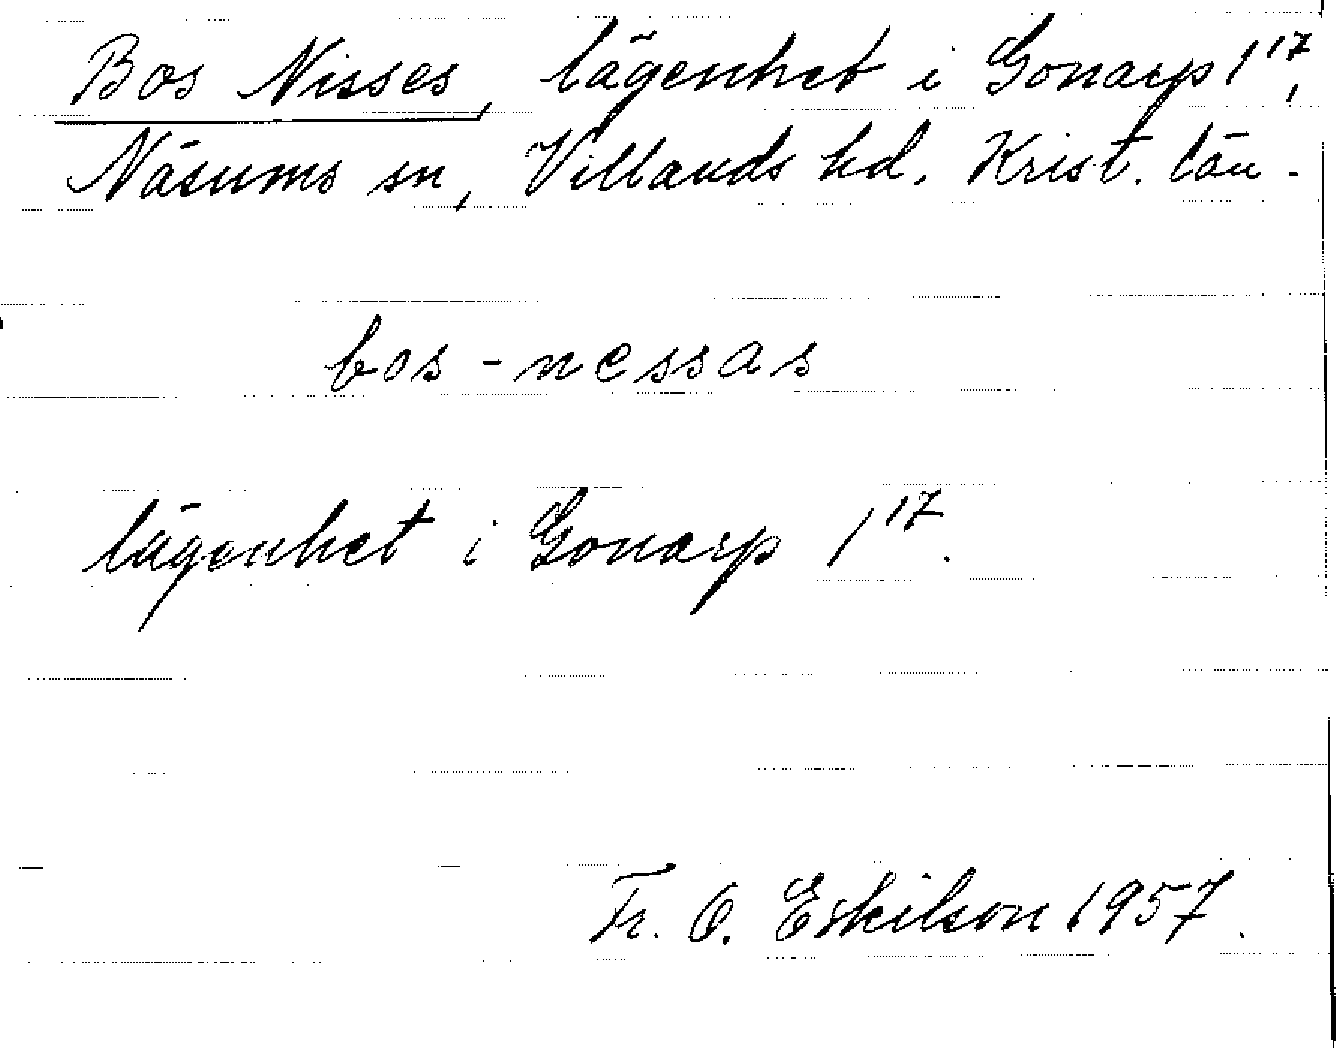 Bos Nisses, lägenhet i Gonarp 1¹⁷,
Näsums sn, Villands hd. Krist. län.
bos-nessas
lägenhet i Gonarp 1¹⁷.
Fr. O. Eskilson 1957.